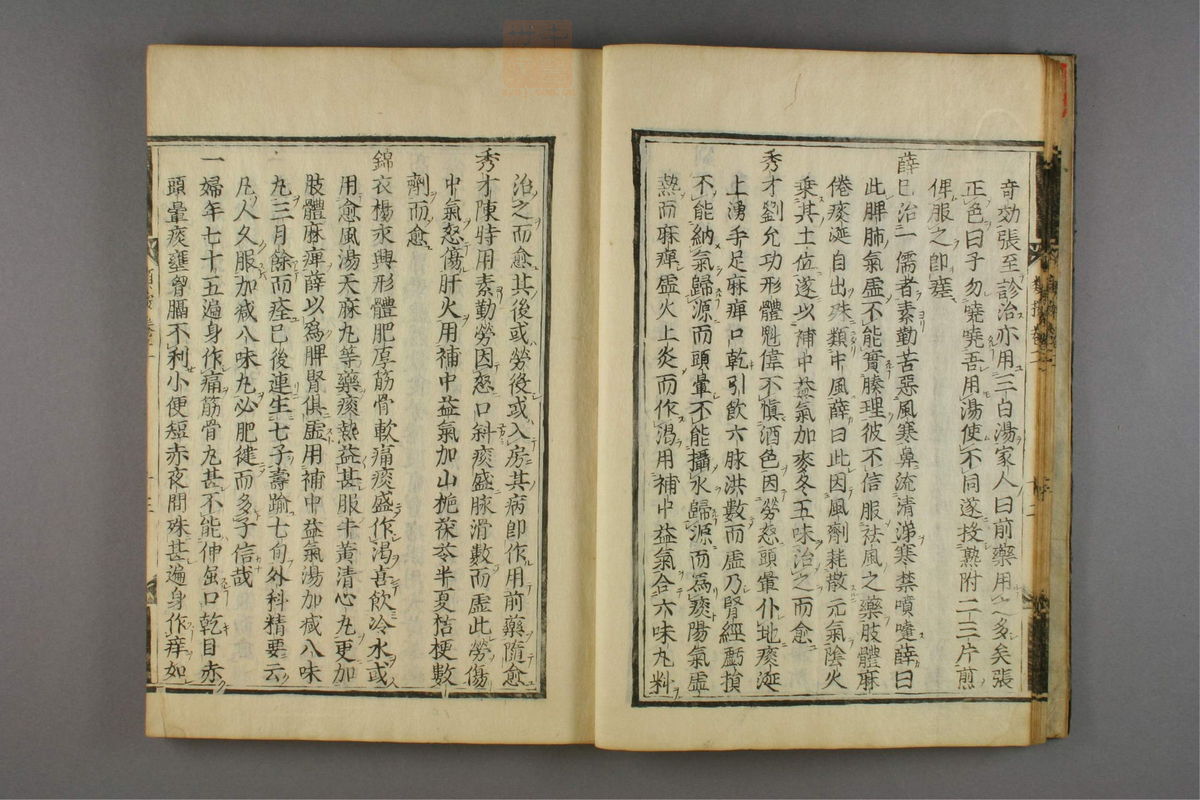 奇効張至診治亦用三白湯家人曰前藥用之多矣張
正色曰子勿嘵嘵吾用湯使不同遂投熟附二三片煎
俾服之即瘥
薛已治一儒者素勤苦惡風寒鼻流清涕寒禁噴嚏薛曰
此脾肺氣虛不能實腠理彼不信服祛風之藥肢體麻
倦痰涎自出殊類中風薛曰此因風劑耗散元氣陰火
乘其土位遂以補中益氣加麥冬五味治之而愈
秀才劉允功形體魁偉不慎酒色因勞怒頭暈仆地痰涎
上湧手足麻痺口乾引飲六脉洪數而虛乃腎經虧損
不能納氣歸源而頭暈不能攝水歸源而為痰陽氣虛
熱而麻痺虛火上炎而作渴用補中益氣合六味丸料
治之而愈其後或勞役或入房其病即作用前藥隨愈
秀才陳時用素勤勞因怒口斜痰盛脉滑數而虛此勞傷
中氣怒傷肝火用補中益氣加山梔茯苓半夏桔梗數
劑而愈
錦衣楊永興形體肥厚筋骨軟痛痰盛作渴喜飲冷水或
用愈風湯天麻丸等藥痰熱益甚服牛黃清心丸更加
肢體麻痺薛以為脾腎俱虛用補中益氣湯加減八味
丸三月餘而痊已後連生七子壽踰七旬外科精要云
凡人久服加減八味丸必肥健而多子信哉
一婦年七十五遍身作痛筋骨尤甚不能伸屈口乾目赤
頭暈痰壅胷膈不利小便短赤夜間殊甚遍身作痒如